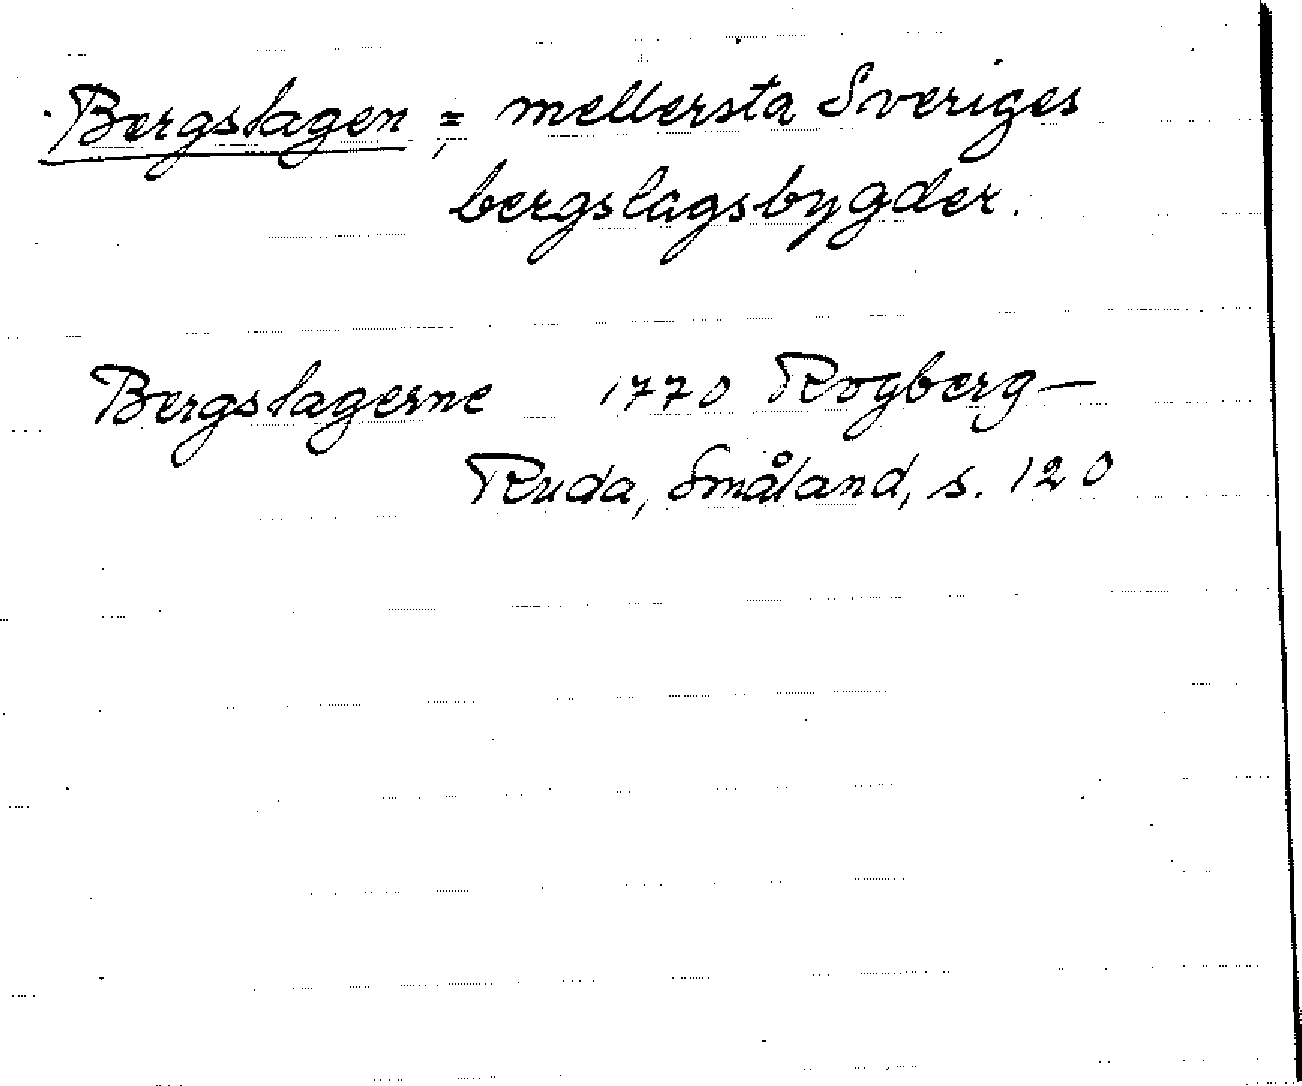 Bergslagen = mellersta Sveriges
bergslagsbygder.
Bergslagerne 1770 Rogberg-
Ruda, Småland, s. 120